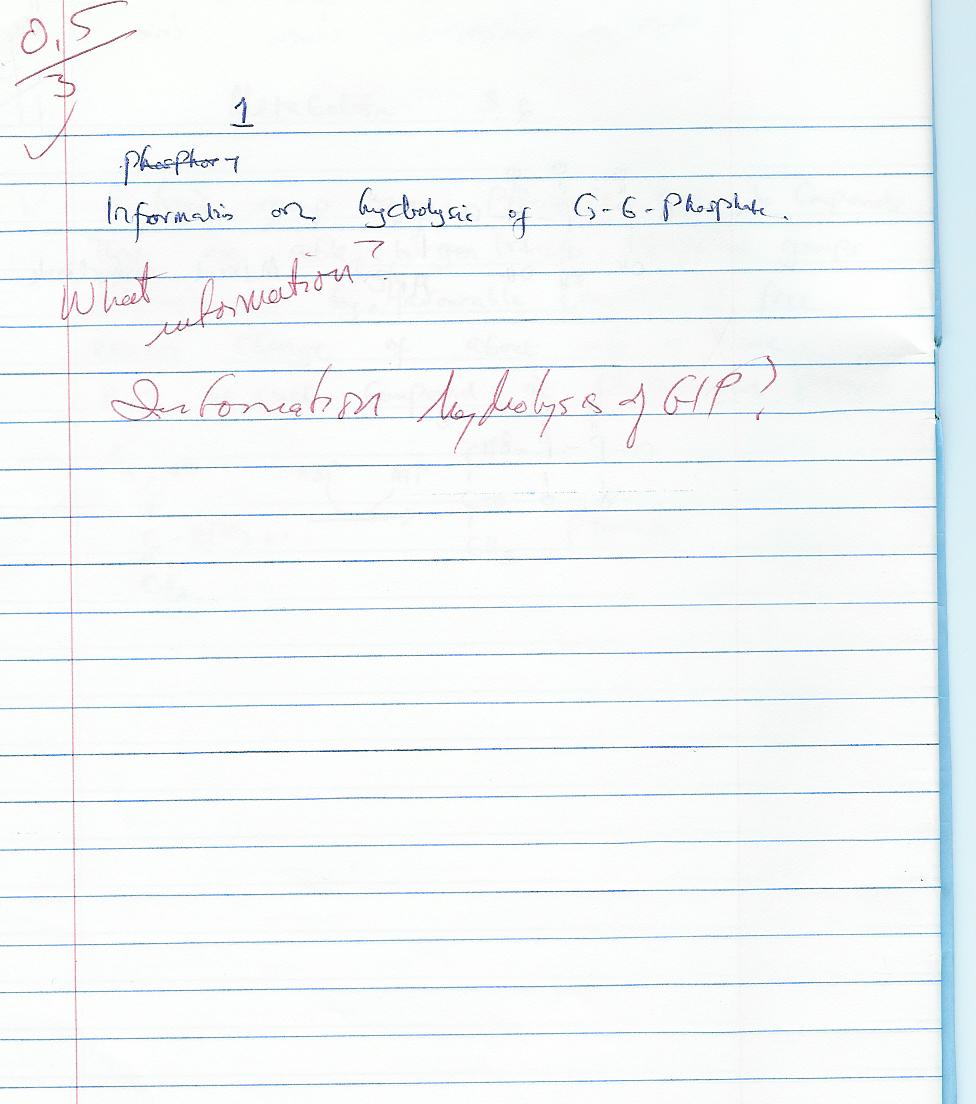 0.5
3
1
Information on hydrolysis of G-6-Phosphate.
What
information?
Information hydrolysis of G1P?